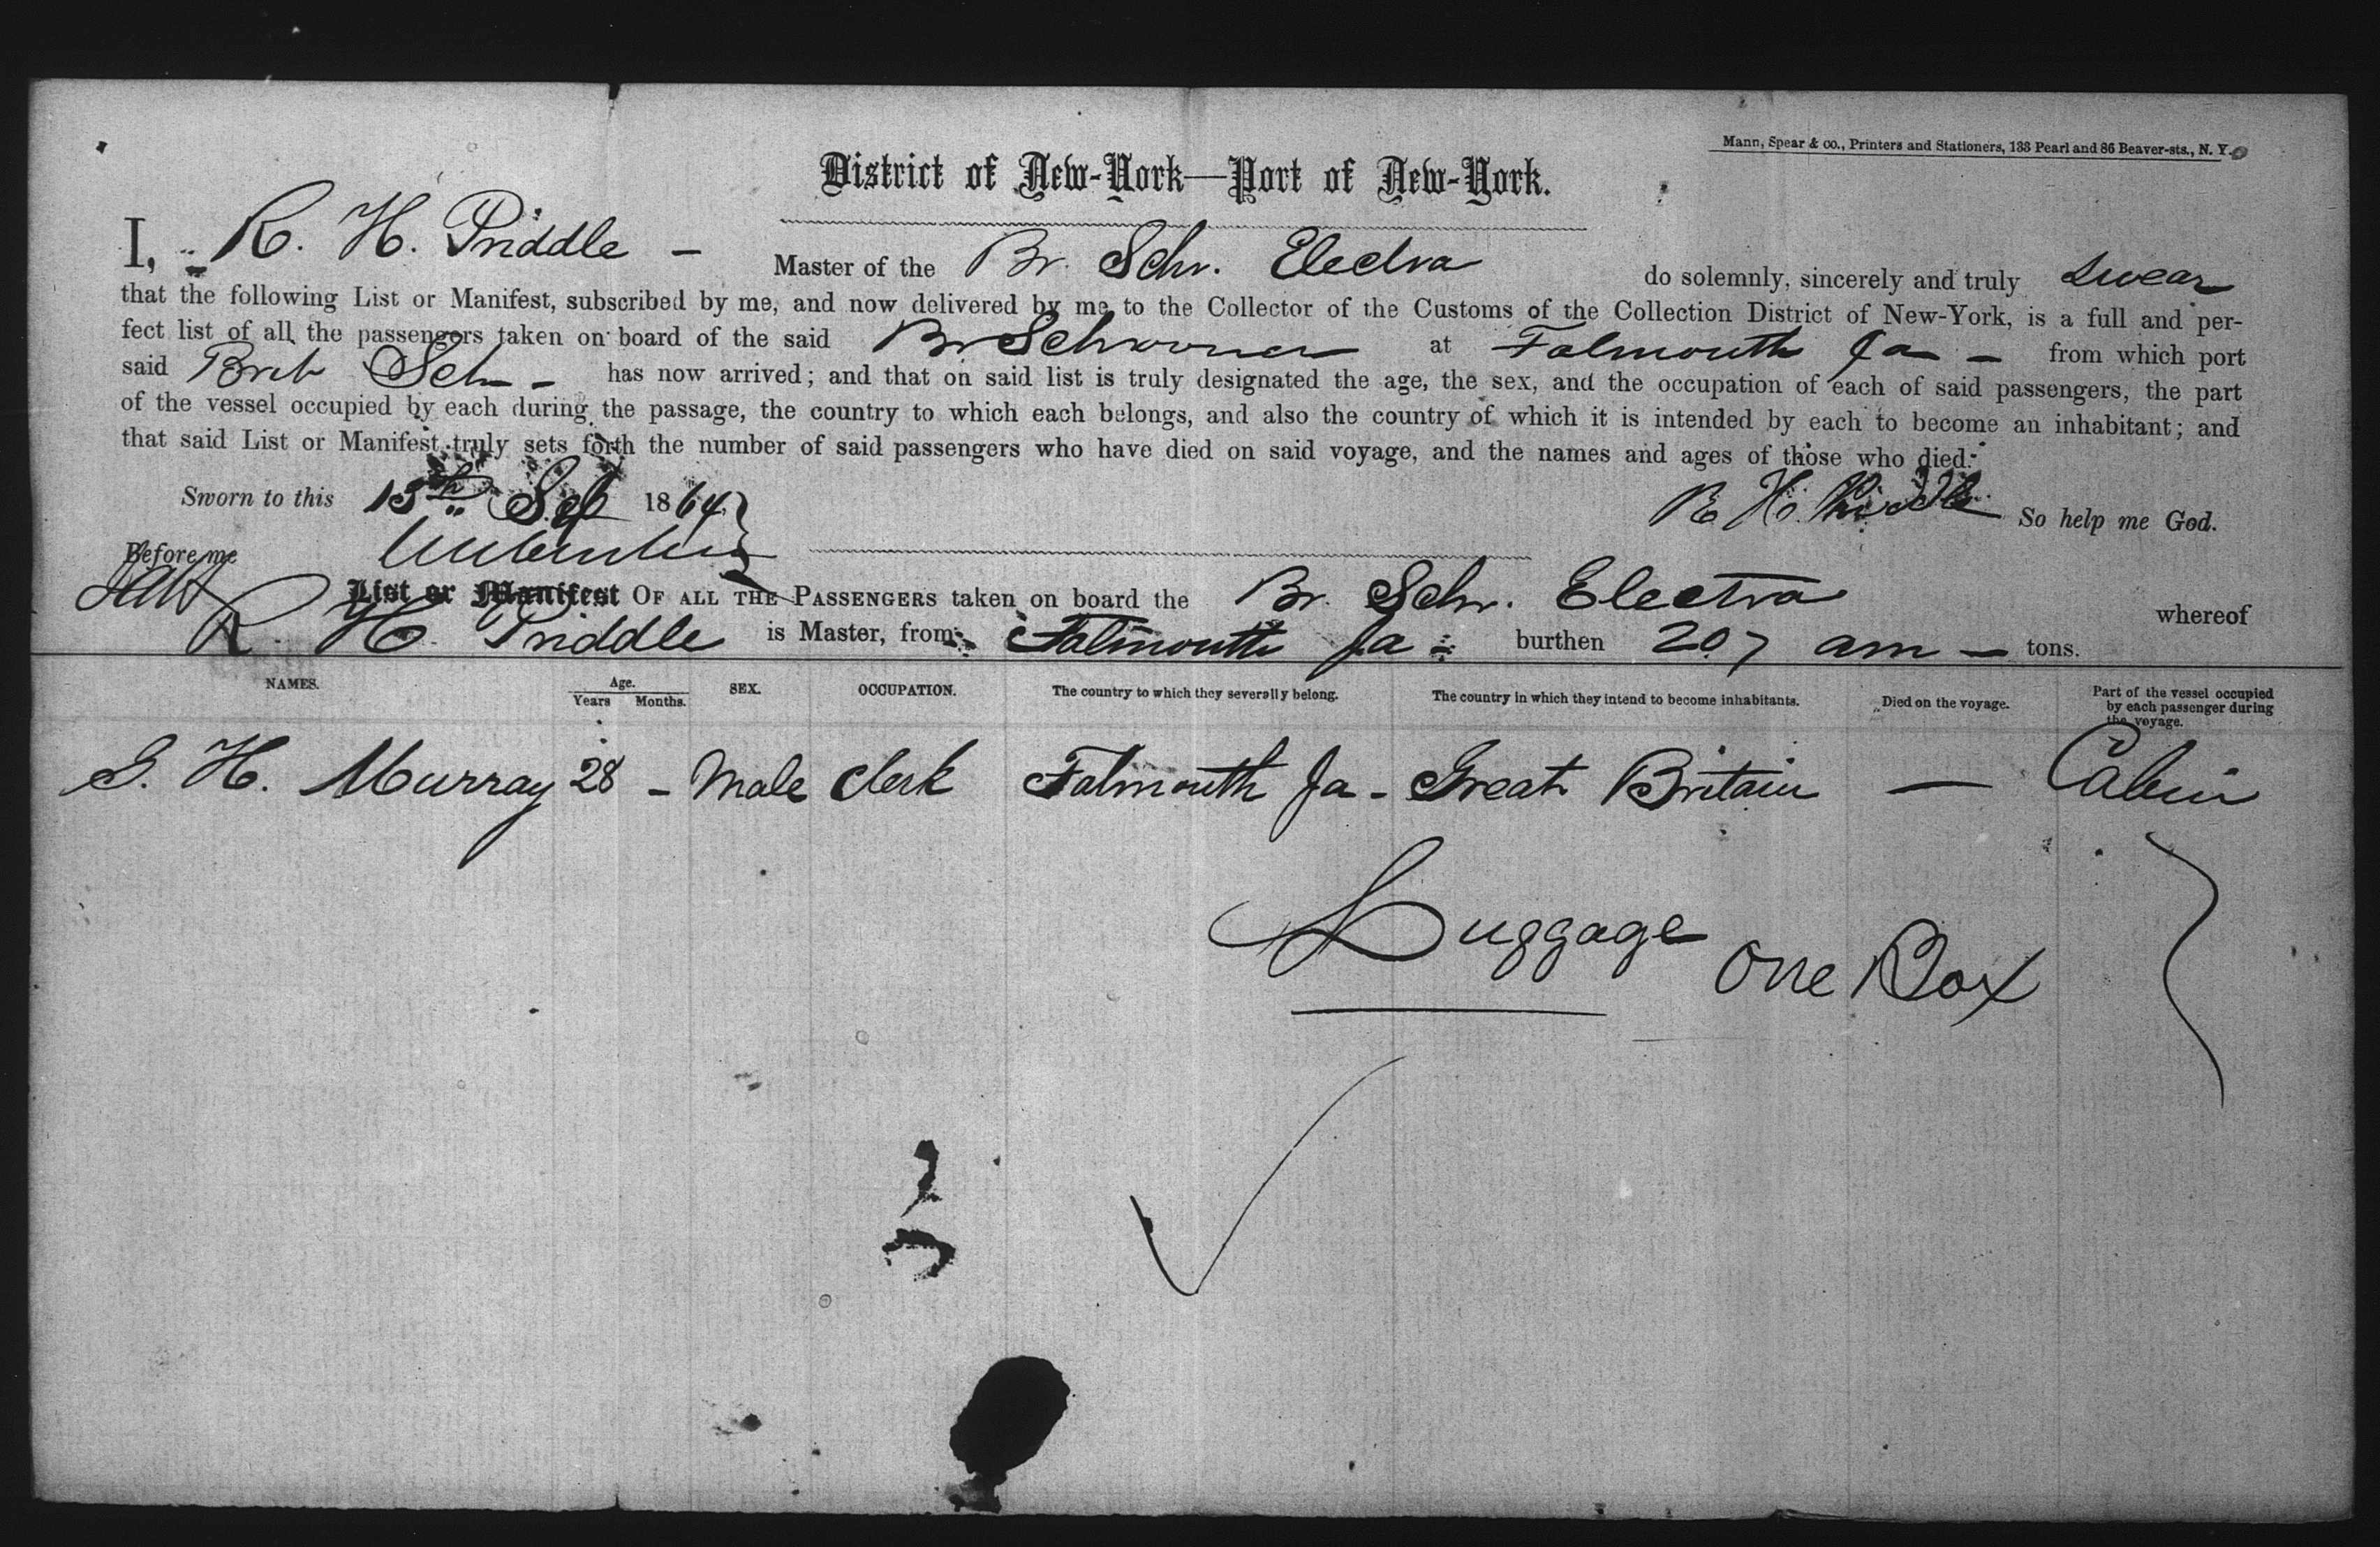 Mann, Spear & co., Printers and Stationers, 133 Pearl and 86 Beaver-sts., N. Y.
District of New-York—Port of New-York.
I, R. H. Priddle - Master of the Br. Schr. Electra do solemnly, sincerely and truly swear
that the following List or Manifest, subscribed by me, and now delivered by me to the Collector of the Customs of the Collection District of New-York, is a full and per-
fect list of all the passengers taken on board of the said Br Schooner at Falmouth Ja - from which port
said Brit Sch - has now arrived; and that on said list is truly designated the age, the sex, and the occupation of each of said passengers, the part
of the vessel occupied by each during the passage, the country to which each belongs, and also the country of which it is intended by each to become an inhabitant; and
that said List or Manifest truly sets forth the number of said passengers who have died on said voyage, and the names and ages of those who died.
Sworn to this 15th Sep 1864 R. H. Priddle So help me God.
Before me
List or Manifest OF ALL THE PASSENGERS taken on board the Br. Schr. Electra whereof
R. H. Priddle is Master, from Falmouth Ja burthen 207 am - tons.
NAMES. Age. Years Months. SEX. OCCUPATION. The country to which they severally belong. The country in which they intend to become inhabitants. Died on the voyage. Part of the vessel occupied by each passenger during the voyage.
G. H. Murray 28 - Male Clerk Falmouth Ja - Great Britain — Cabin
Luggage One Box